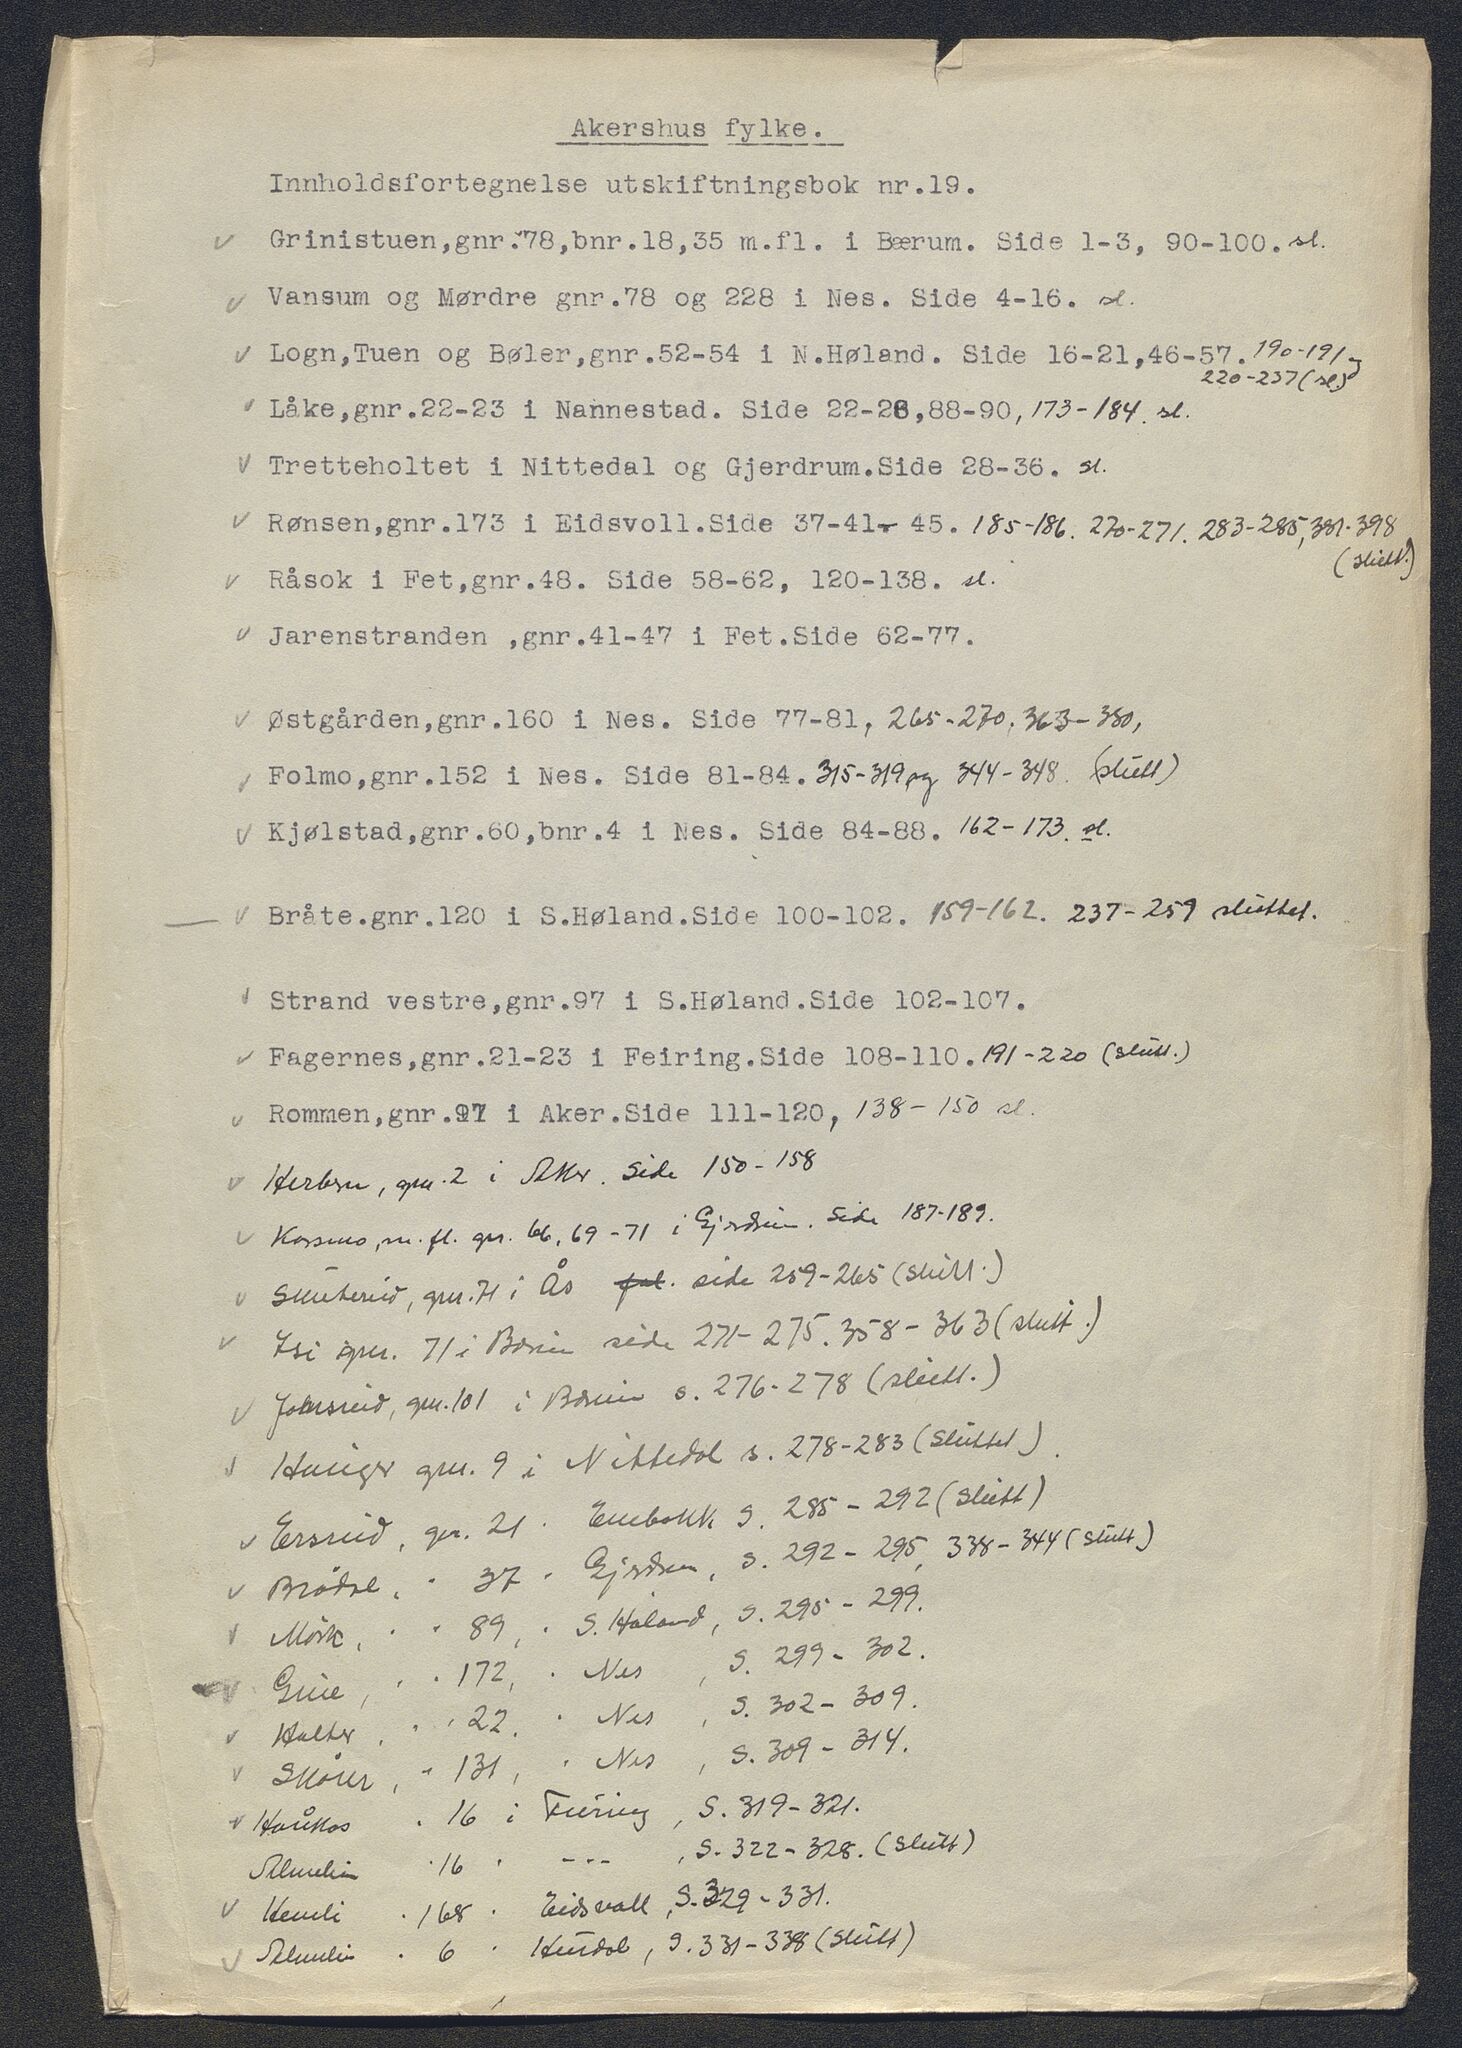 Akershus fylke.
Innholdsfortegnelse utskiftningsbok nr.19.
Grinistuen,gnr.78,bnr.18,35 m.fl. i Bærum. Side 1-3, 90-100. sl.
Vansum og Mørdre gnr.78 og 228 i Nes. Side 4-16. sl.
Logn,Tuen og Bøler,gnr.52-54 i N.Høland. Side 16-21,46-57. 190-191 og
220-237 (sl.)
Låke,gnr.22-23 i Nannestad. Side 22-28,88-90, 173-184. sl.
Tretteholtet i Nittedal og Gjerdrum.Side 28-36. sl.
Rønsen,gnr.173 i Eidsvoll.Side 37-41- 45. 185-186. 270-271. 283-285, 381-398
(slutt.)
Råsok i Fet,gnr.48. Side 58-62, 120-138. sl.
Jarenstranden ,gnr.41-47 i Fet.Side 62-77.
Østgården,gnr.160 i Nes. Side 77-81, 265-270, 363-380,
Folmo,gnr.152 i Nes. Side 81-84. 315-319 og 344-348. (slutt)
Kjølstad,gnr.60,bnr.4 i Nes. Side 84-88. 162-173. sl.
Bråte.gnr.120 i S.Høland.Side 100-102. 159-162. 237-259 sluttet.
Strand vestre,gnr.97 i S.Høland.Side 102-107.
Fagernes,gnr.21-23 i Feiring.Side 108-110. 191-220 (slutt.)
Rommen,gnr.97 i Aker.Side 111-120, 138-150 sl.
gnr. 2 i Aker. Side 150-158
Kossmo, m. fl. gnr. 66, 69-71 i Gjerdrum. Side 187-189.
Skuterud, gnr. 71 i Ås side 259-265 (slutt.)
Isi gnr. 71 i Bærum side 271-275. 358-363 (slutt.)
Johnsrud, gnr. 101 i Bærum s. 276-278 (slutt.)
gnr. 9 i Nittedal s. 278-283 (sluttet)
Ersrud, gnr. 21 " Enebakk s. 285-292 (slutt)
Brådal, " 37 " Gjerdrum, s. 292-295, 338-344 (slutt.)
Mørk, " " 89, " S. Høland, s. 295-299.
" " 172, " Nes, s. 299-302.
Halter, " " 22, " Nes, s. 302-309.
Skårer, " 131, " Nes, s. 309-314.
Haukås " 16 i Feiring, s. 319-321.
Almelin " 16 " ---, s. 322-328. (slutt)
Hemli " 168 " Eidsvoll, s. 329-331.
Almelin " 6 " Hurdal, s. 331-338 (slutt)